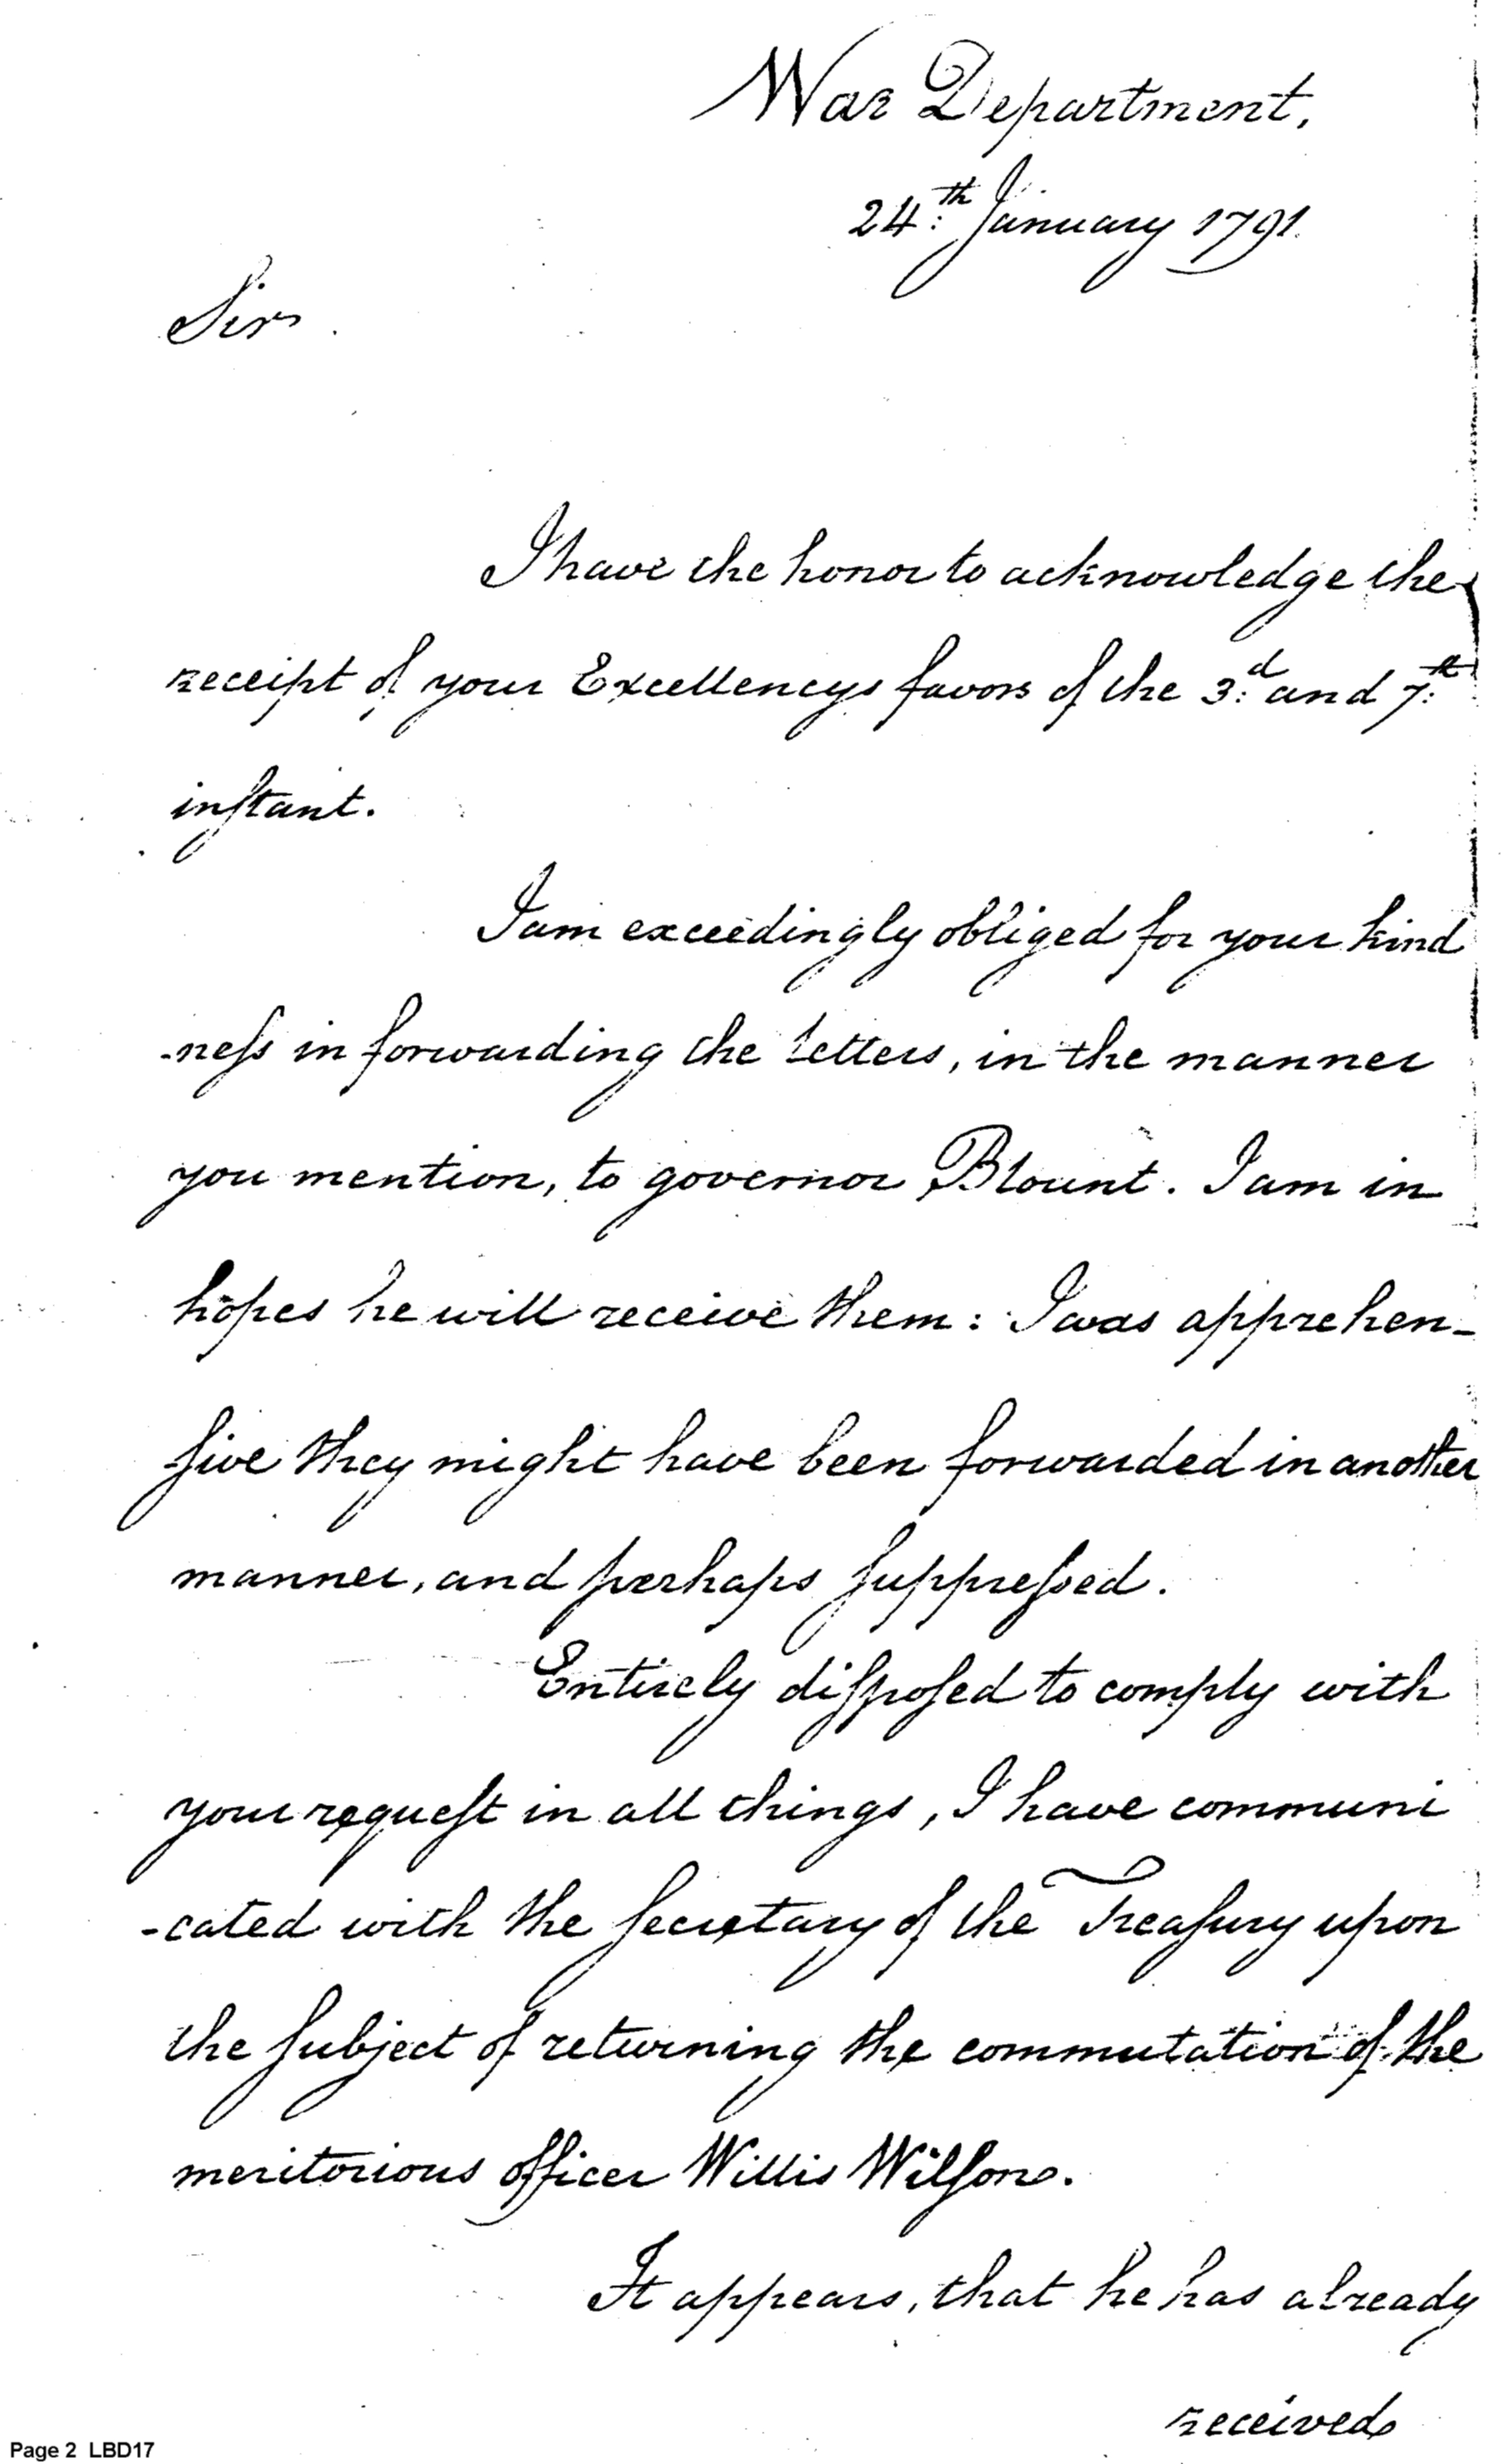 War Department,
24th January 1791.
Sir.
I have the honor to acknowledge the
receipt of your Excellencys favors of the 3d and 7th
instant.
I am exceedingly obliged for your kind
-ness in forwarding the letters, in the manner
you mention, to governor Blount. I am in
hopes he will receive them: I was apprehen-
sive they might have been forwarded in another
manner, and perhaps suppressed.
Entirely disposed to comply with
your request in all things, I have communi
-cated with the Secretary of the Treasury upon
the subject of returning the commutation of the
meritorious officer Willis Wilson.
It appears, that he has already
received
Page 2 LBD17